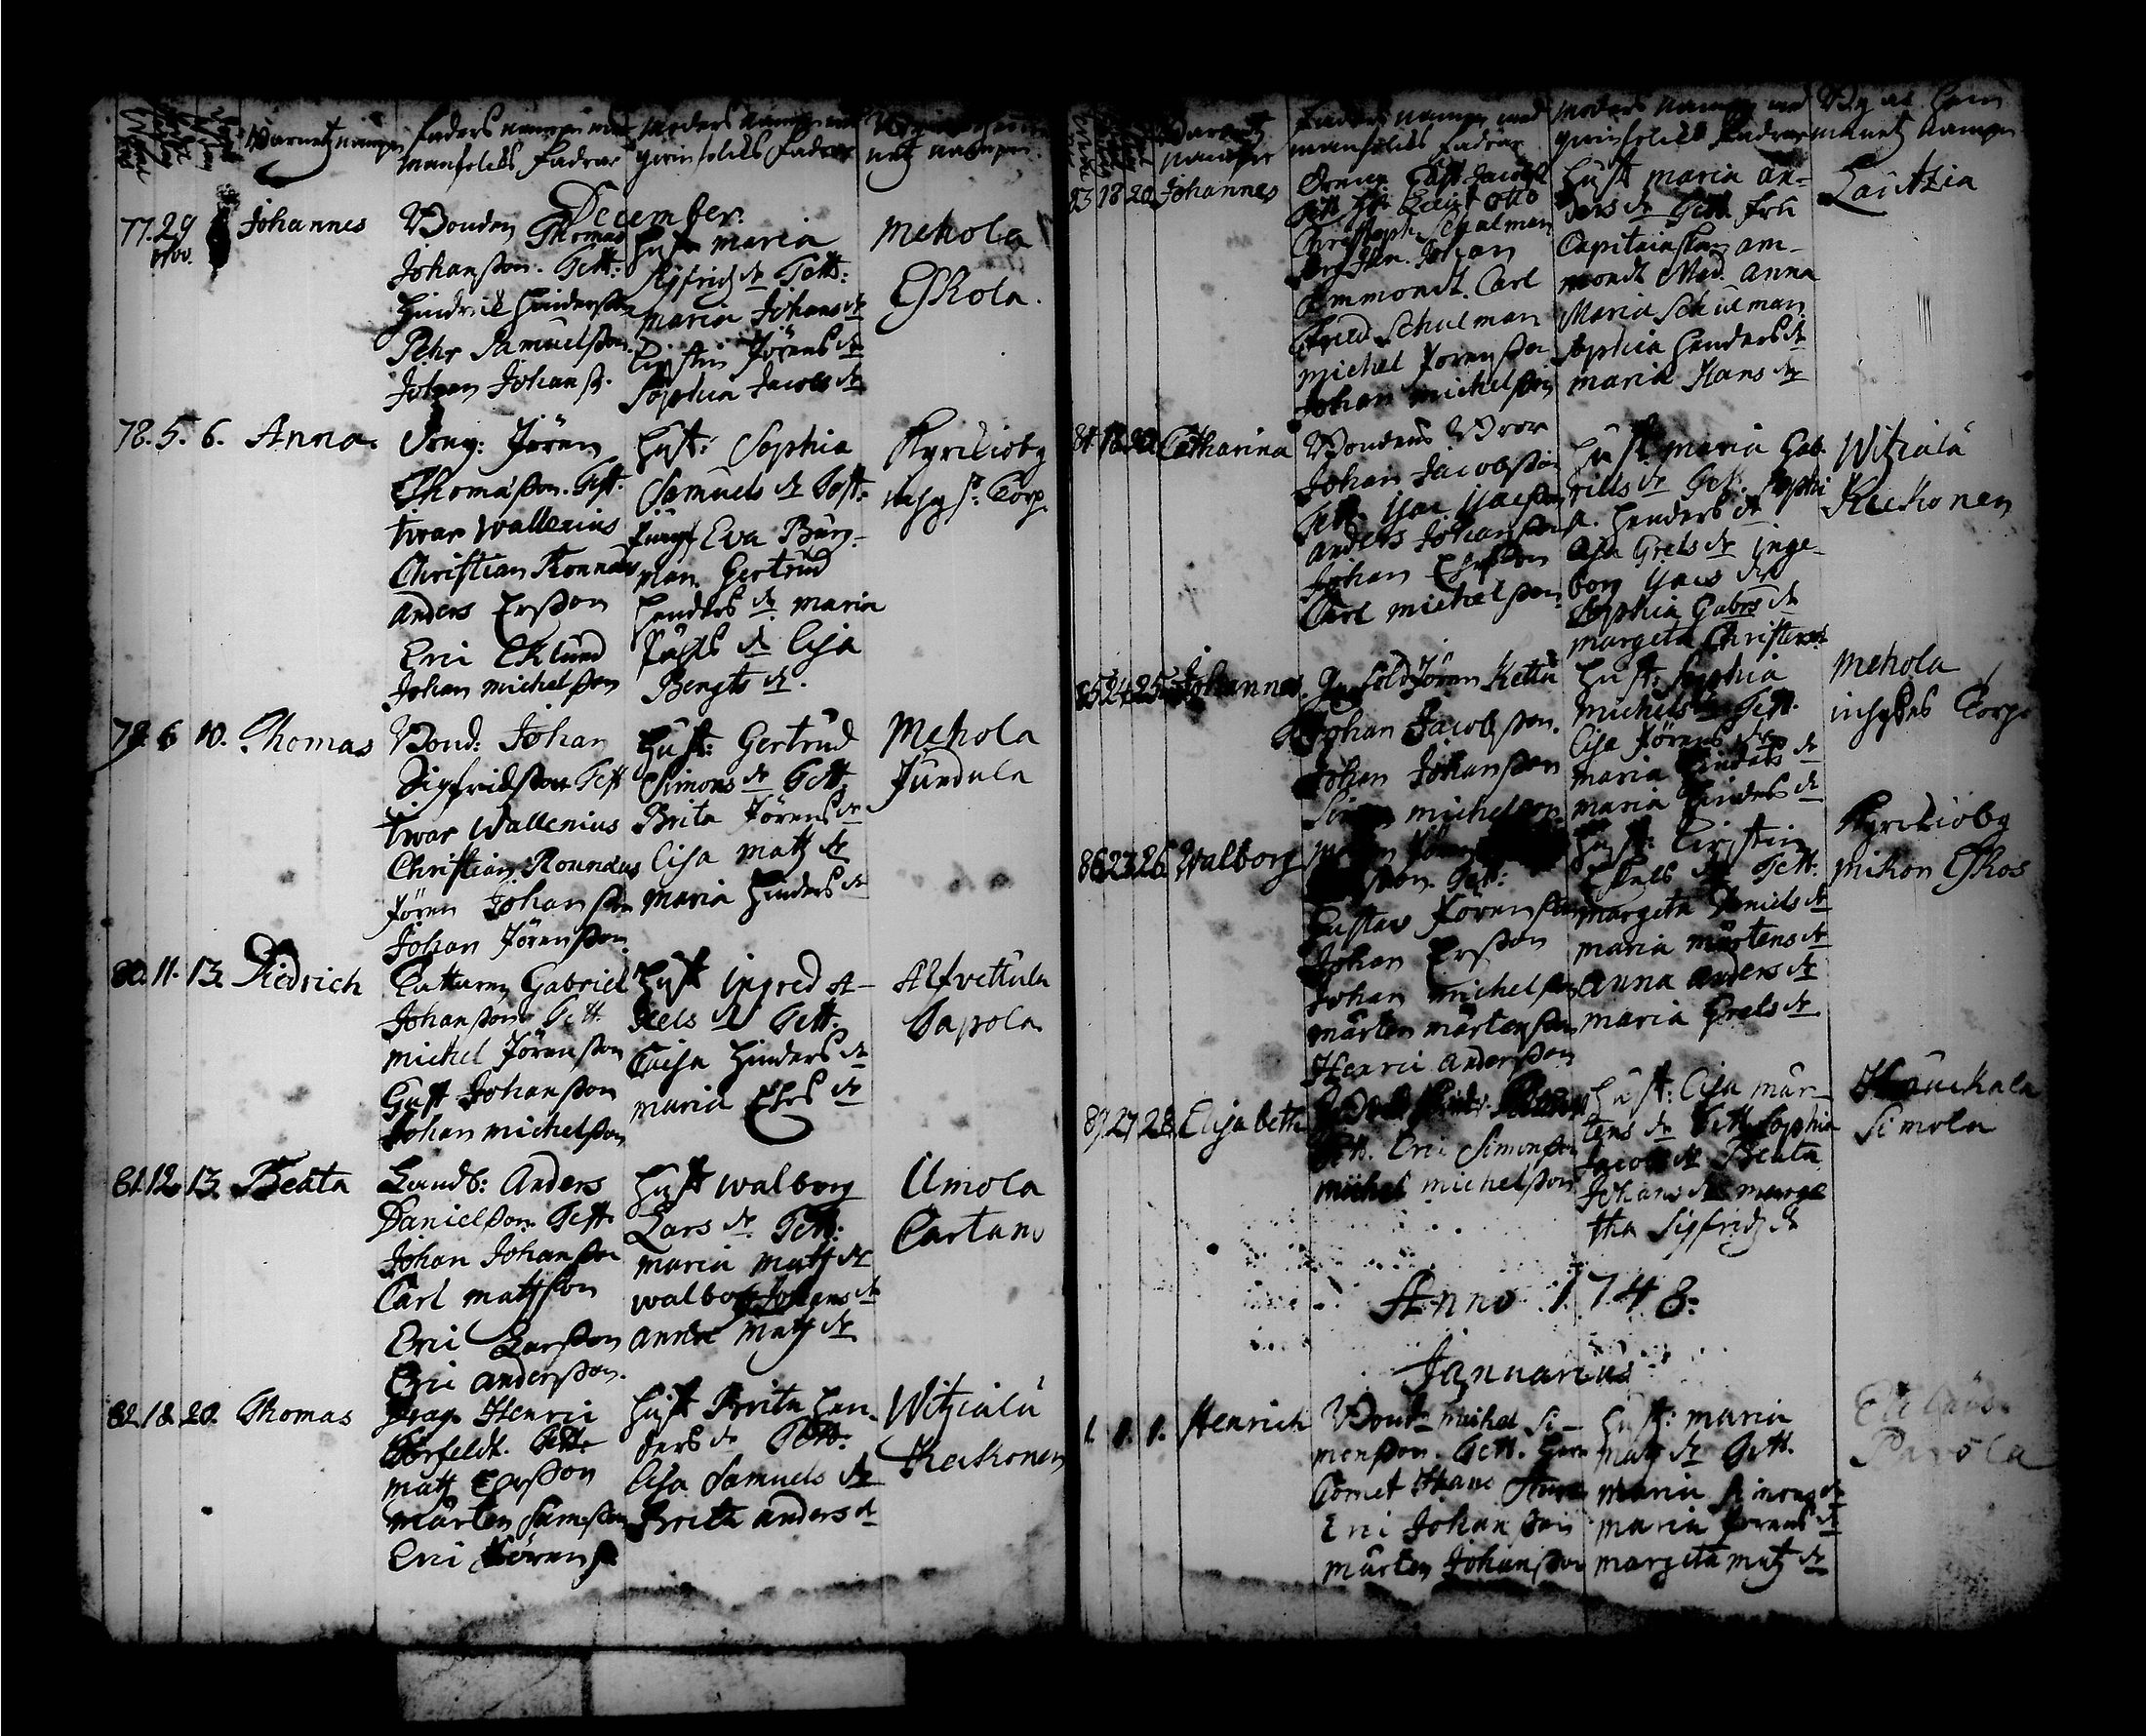 Barnetz nampn
Faders nampn med manfolkes Fadrar
Moders nampn med qwinfolkes Fadrar
December.
77. 29 Nov. Johannes
Bonden Thomas
Johansson. Test:
Hindrich Hindersson
Pehr Samuelsson.
Johan Johanss.
Hust maria
Sigfridz dr Test:
maria Johans dr
Cirstin Jörens dr
Sophia Jacobs dr
Mehola
Eskola.
78. 5. 6. Anna.
Jöran
Thomasson. Test.
Iwar Wallenius
Christian Ronnæus
Anders Ersson
Eric Eklund
Johan michelsson
Hust: Sophia
Samuels dr Test:
Jungf Eva Burg-
man. Gertrud
Henders dr maria
dr Lisa
Bengts dr.
Kyrckioby
79. 6 10. Thomas
Bond: Johan
Sigfridsson Test
Iwar Wallenius
Christian Ronnæus
Jören Johansson
Johan Jörensson.
Hust: Gertrud
Simons dr Test.
Brita Jörens dr
Lisa matz dr
Maria Hinders dr
Mehola
Jundula
80. 11. 13. Diedrich
Gabriel
Johansson. Test.
michel Jörensson
Gust Johansson
Johan michelsson
Hust Ingred A-
xels dr Test.
Caisa Hinders dr
maria Ehrs dr
Alfvettula
Sapola
81. 12. 13. Beata
Landb: Anders
Danielsson. Test.
Johan Johansson
Carl mattsson
Eric Larsson
Eric andersson.
Hust walborg
Lars dr. Test:
maria matz dr
walborg Johans dr
Anna matz dr
Umola
Cartano
82. 18. 20. Thomas
Drag. Henric
Test.
matz Ehrsson
Mårten Samsson
Eric Jörenss
Hust Brita Hen-
ders dr Test:
Lisa Samuels dr
Brita anders dr
Witziala
Keckonen
Barnetz nampn
Faders nampn med manfolkes Fadrar
Moders nampn med qwinfolkes Fadrar
83 18 20 Johannes
Otto
Christoph. Schulman
Johan
Ammondt. Carl
Fried Schulman
michel Jörensson
Johan michelsson
Hust maria An-
ders dr Test. Fru
Capitainskan Am-
mondt Mad. Anna
Maria Schulman
Sophia Henders dr
maria Hans dr
Lautzia
84. 18. 20 Catharina
Bondens Bror
Johan Jacobsson
Test. Isac Isacsson
anders Johansson
Johan Ehrsson
Carl michelsson
Hust maria Gab-
riels dr Test. Sophi
a. Henders dr
Lisa Grels dr Inge-
borg Isacs dr
Sophia Gabrs dr
margeta Christers dr
Witziala
Keckonen
85 24 25 Johannes.
Jören Kettu
Johan Jacobsson.
Johan Johansson
michelsson
Hust: Sophia
Michels dr Test.
Lisa Jörens dr
maria Hinders dr
maria Hinders dr
Mehola
86 23 26 Walborg
Test:
Gustav Jörensson
Johan Ersson
Johan michelsson
mårten mårtensson
Henric andersson
Hust: Cirstin
Eskels dr Test.
margeta Daniels dr
maria mårtens dr
anna anders dr
maria Grels dr
Kyrckioby
Mikon Eskos
87 27 28 Elisabeth
Test. Eric Simonsson
michel michelsson
Hust: Lisa mår-
tens dr Test. Sophia
Jacobs dr Beata
Johans dr marga
tha Sigfridz dr
Simola
Anno 1748:
Januarius
1. 1. 1. Henrich
Bond: michel Si-
monsson. Test. Herr
Cornet Hans
Eric Johansson
mårten Johansson
Hust: maria
matz dr Test.
maria Simons dr
maria Jörens dr
margeta matz dr